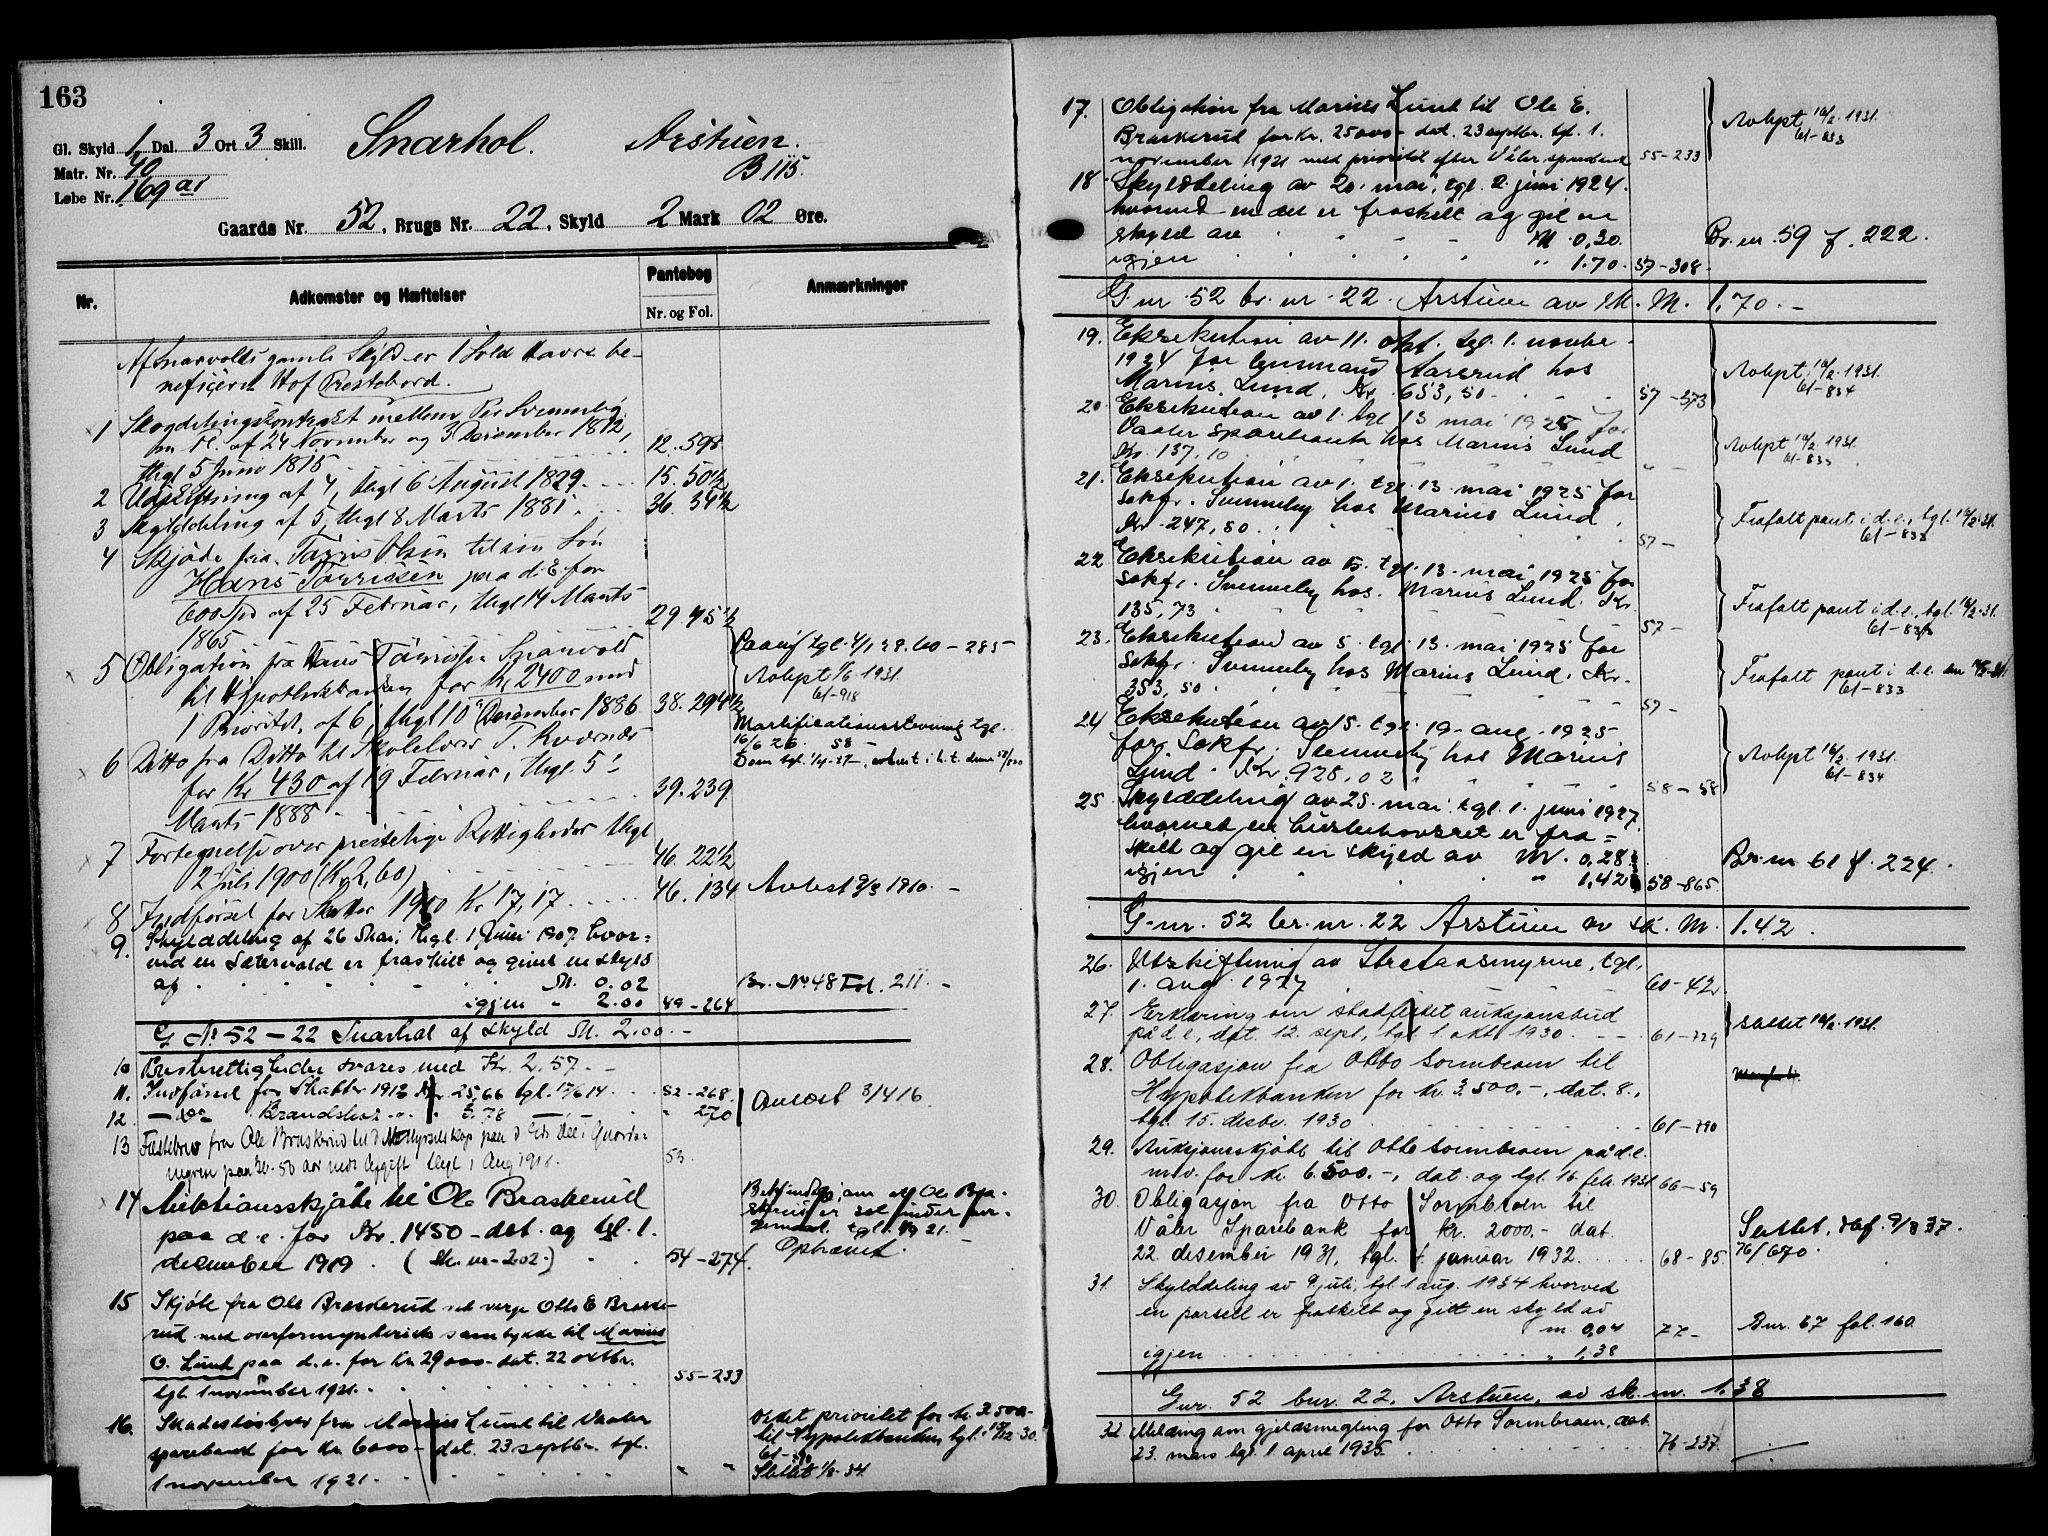 163
Gl. Skyld 1 Dal. 3 Ort 3 Skill. Snarhol. Arstuen.
Matr. Nr. 40 B 115.
Løbe Nr. 169 ar
Gaards Nr. 52, Brugs Nr. 22, Skyld 2 Mark 02 Øre.
Nr. Adkomster og Hæftelser Pantebog Anmærkninger
Nr. og Fol.
Af Snarvolds gamle Skyld er 1 Sold Havre be-
neficeret Hof Prestebord.
1 Skogdelingskontrakt mellem Per Svenneby
m. fl. af 24 November og 3 Desember 1812,
thgl 5 Juni 1815 12. 595
2 Udskiftning af 4, thgl 6 August 1829. 15. 50½
3 Skylddeling af 5, thgl 8 Marts 1881. 36. 34½
4 Skjøde fra Tørris Olsen til sin Søn
Hans Tørrissen paa d. E. for
600 Spd af 25 Februar, thgl 14 Marts
1865 29. 45½
5 Obligation fra Hans Tørrissen Snarvold
til Hypothekbanken for Kr 2400 med
1 Prioritet, af 6, thgl 10 Desember 1886 38. 294½
Paavist tgl. 4/1 28. 60 - 285 -
Avlyst 1/6 1931.
61-918
6 Ditto fra Ditto til Skolelærer T. Kværnæs
for Kr 430 af 19 Februar, thgl. 5
Marts 1888 39. 239
Mortifikationsstevning tgl.
16/6 26. 58 -
7 Fortegnelse over prestelige Rettigheder thgl
2 Juli 1900 (Kr 2,60) 46. 22½
8 Indførsel for Skatter 1900 Kr 17,17 46. 134 Avlest 9/3 1910. -
9. Skylddeling af 26 Mai, thgl. 1 Juni 1907 hvor-
ved en Sætervold er fraskilt og givet en skyld
af M. 0.02 Br. No 48 Fol. 211. -
igjen " 2.00 49 - 264
G No 52 - 22 Snarhol af skyld M. 2.00. -
10 Presterettigheder svares med Kr. 2.57. -
11. Indførsel for Skatter 1912 Kr. 25,66 tgl. 17/6 14 52 - 268.
12. - do " Brandskat " 5.78 - " 270 Avlest 3/4 16.
13 Fæstebrev fra Ole Braskerud til paa d. Eds del i
myren paa 50 aar mod Afgift thgl 1 Aug 1916. 53
14 Auktionsskjøte til Ole Braskerud
paa d. e. for Kr. 1450 - dat. og tgl. 1.
december 1919. (Sk. nr - 202.) 54 - 274.
om at Ole Bra-
skerud er sat under ver-
gemaal tgl. 21. -
Ophævet.
15 Skjøte fra Ole Braskerud ved verge Otto E Braske-
rud med overformynderiets samtykke til Marius
O. Lund paa d. e. for kr. 29000 - dat. 22 oktbr.
tgl. 1 november 1921. 55 - 233
16. Skadesløsbrev fra Marius Lund til Vaaler
sparebank for kr 6000 - dat. 23. septbr. tgl.
1 november 1921. " "
Veket prioritet for kr. 3500 -
til Hypotekbanken tgl. 15/12 30.
61-790
Slettet 1/8 34.
17. Obligation fra Marius Lund til Ole E.
Braskerud for kr. 25000 - dat. 23 septbr. tgl. 1.
november 1921 med prioritet efter Våler sparebank 55 - 233
Avlyst 16/2 1931.
61-833
18. Skylddeling av 20. mai, tgl. 2. juni 1924.
hvorved en del er fraskilt og git en
skyld av M. 0,30. Br. nr. 59 f. 222.
igjen " 1.70. 57 - 308 -
G. nr. 52 br. nr. 22. Arstuen av sk. M. 1,70. -
19. Eksekution av 11. okt. tgl. 1. novbr.
1924 for lensmand Aaserud hos
Marius Lund. Kr. 653,50 57 - 573
Avlyst 16/2 1931.
61-834
20. Eksekution av 1. tgl. 13 mai 1925 for
Vaaler sparebank hos Marius Lund
Kr. 137,10 " -
Avlyst 16/2 1931.
61-833
21. Eksekution av 1. tgl. 13. mai 1925 for
sakfr. Svenneby hos Marius Lund.
Kr. 247,50. 57 -
Frafalt pant i d. e., tgl. 16/2 31.
61-833
22 Eksekution av 5. tgl. 13. mai 1925 for
sakfr. Svenneby hos. Marius Lund. Kr.
135,73 57 -
Frafalt pant i d. e., tgl. 16/2 31.
61-833
23. Eksekution av 5. tgl. 13. mai 1925 for
sakfr. Svenneby hos Marius Lund. Kr.
353,50 57 -
Frafalt pant i d. e.
61-833
24 Eksekution av 15. tgl. 19. aug. 1925
for sakfr. Svenneby hos Marius
Lund. Kr. 928,02 58 - 58
Avlyst 16/2 1931.
61-834
25. Skylddeling av 25. mai tgl. 1. juni 1927.
hvorved en er fra-
skilt og git en skyld av M. 0,28 Br. nr 61 f. 224.
igjen " 1,42 58 - 865
G-nr. 52 br. nr. 22 Arstuen av sk. M. 1.42.
26. Utskiftning av tgl.
1. aug 1927 60 - 42
27. Erklæring om stadfestet auksjonsbud
på d. e., dat. 12. sept, tgl. 1 okt 1930. 61 - 729 slettet 16/2 1931.
28. Obligasjon fra Otto Sormbroen til
Hypotekbanken for kr. 3500. -, dat. 8.,
tgl. 15. desbr. 1930 61 - 790
29. Auksjonsskjøte til Otto Sormbroen på d. e.
m. v. for kr. 6500. -, dat. og tgl. 16 feb. 1931 66 - 59
30. Obligasjon fra Otto Sormbroen til
Våler Sparebank for kr. 2000. - dat.
22. desember 1931, tgl. 4 januar 1932. 68 - 85.
Slettet, dbf. 9/3 37.
76/670.
31. Skylddeling av 9 juli, tgl 1 aug. 1934 hvorved
en parsell er fraskilt og gitt en skyld av
m. 0,04 77 - Bnr. 67 fol. 160.
igjen " 1,38
Gnr. 52 bnr. 22, Arstuen, av sk. m. 1.38
32. Melding om gjeldsmegling for Otto Sormbroen, dat.
23. mars tgl. 1 april 1935. 76 - 237.